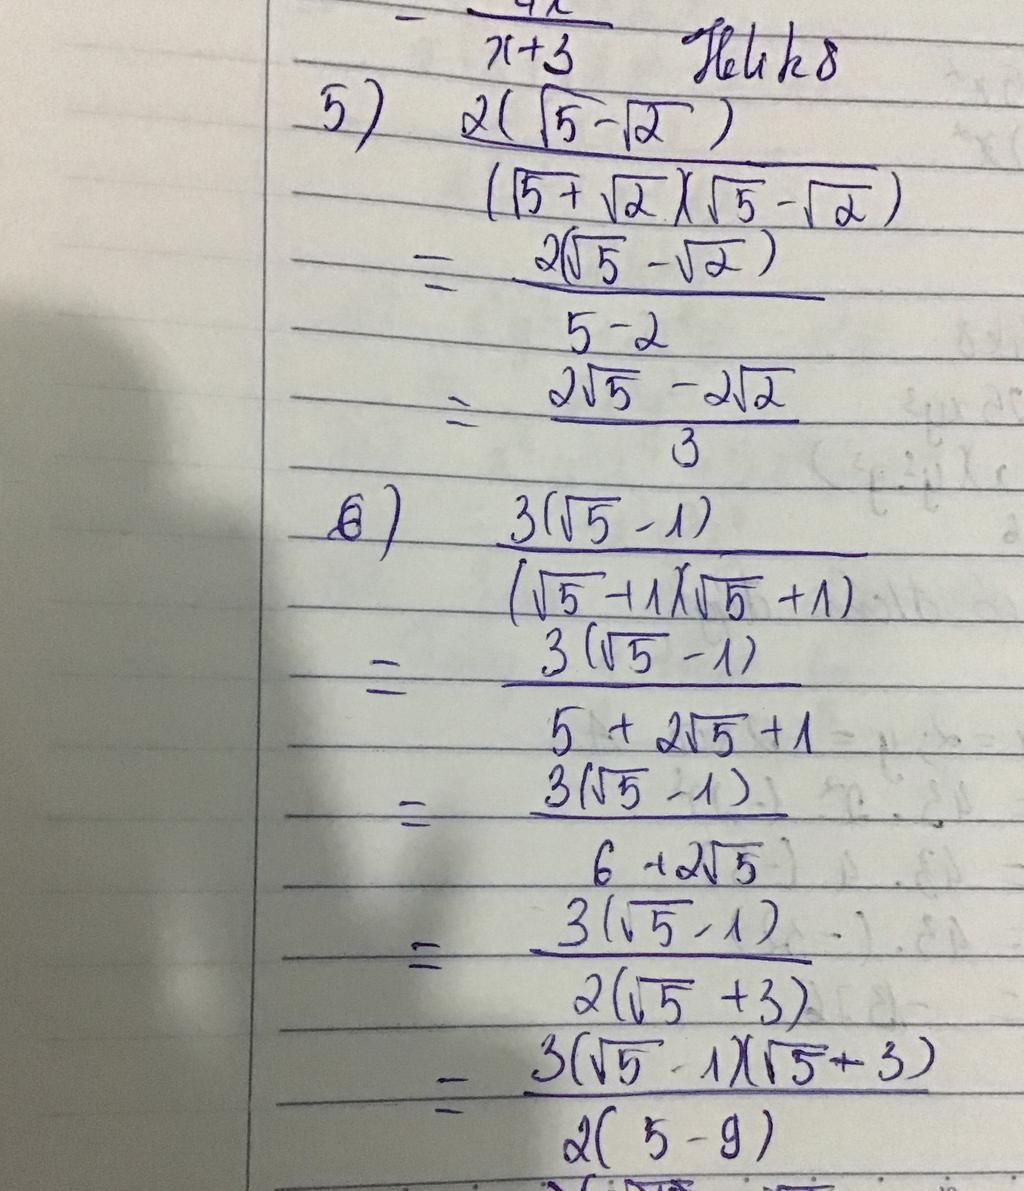 - 4x/(x+3)
5) 2(√5-√2)/((√5+√2)(√5-√2))
= 2(√5-√2)/(5-2)
= (2√5-2√2)/3
6) 3(√5-1)/((√5+1)(√5+1))
= 3(√5-1)/(5+2√5+1)
= 3(√5-1)/(6+2√5)
= 3(√5-1)/(2(√5+3))
= 3(√5-1)(√5+3)/(2(5-9))